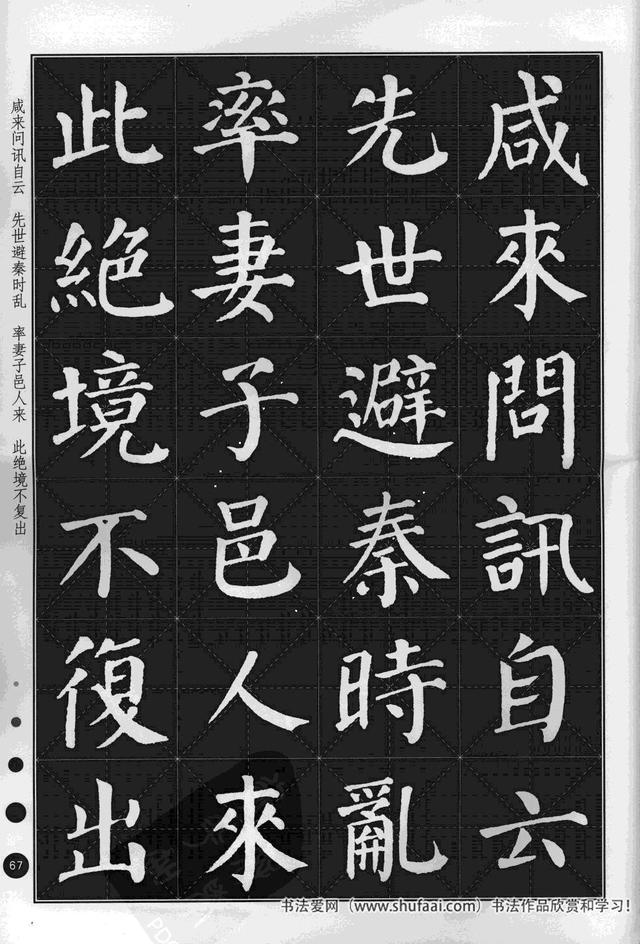 咸來問訊自云
先世避秦時亂
率妻子邑人來
此絕境不復出
咸来问讯自云 先世避秦时乱 率妻子邑人来 此绝境不复出
67
书法爱网（www.shufaai.com）书法作品欣赏和学习！